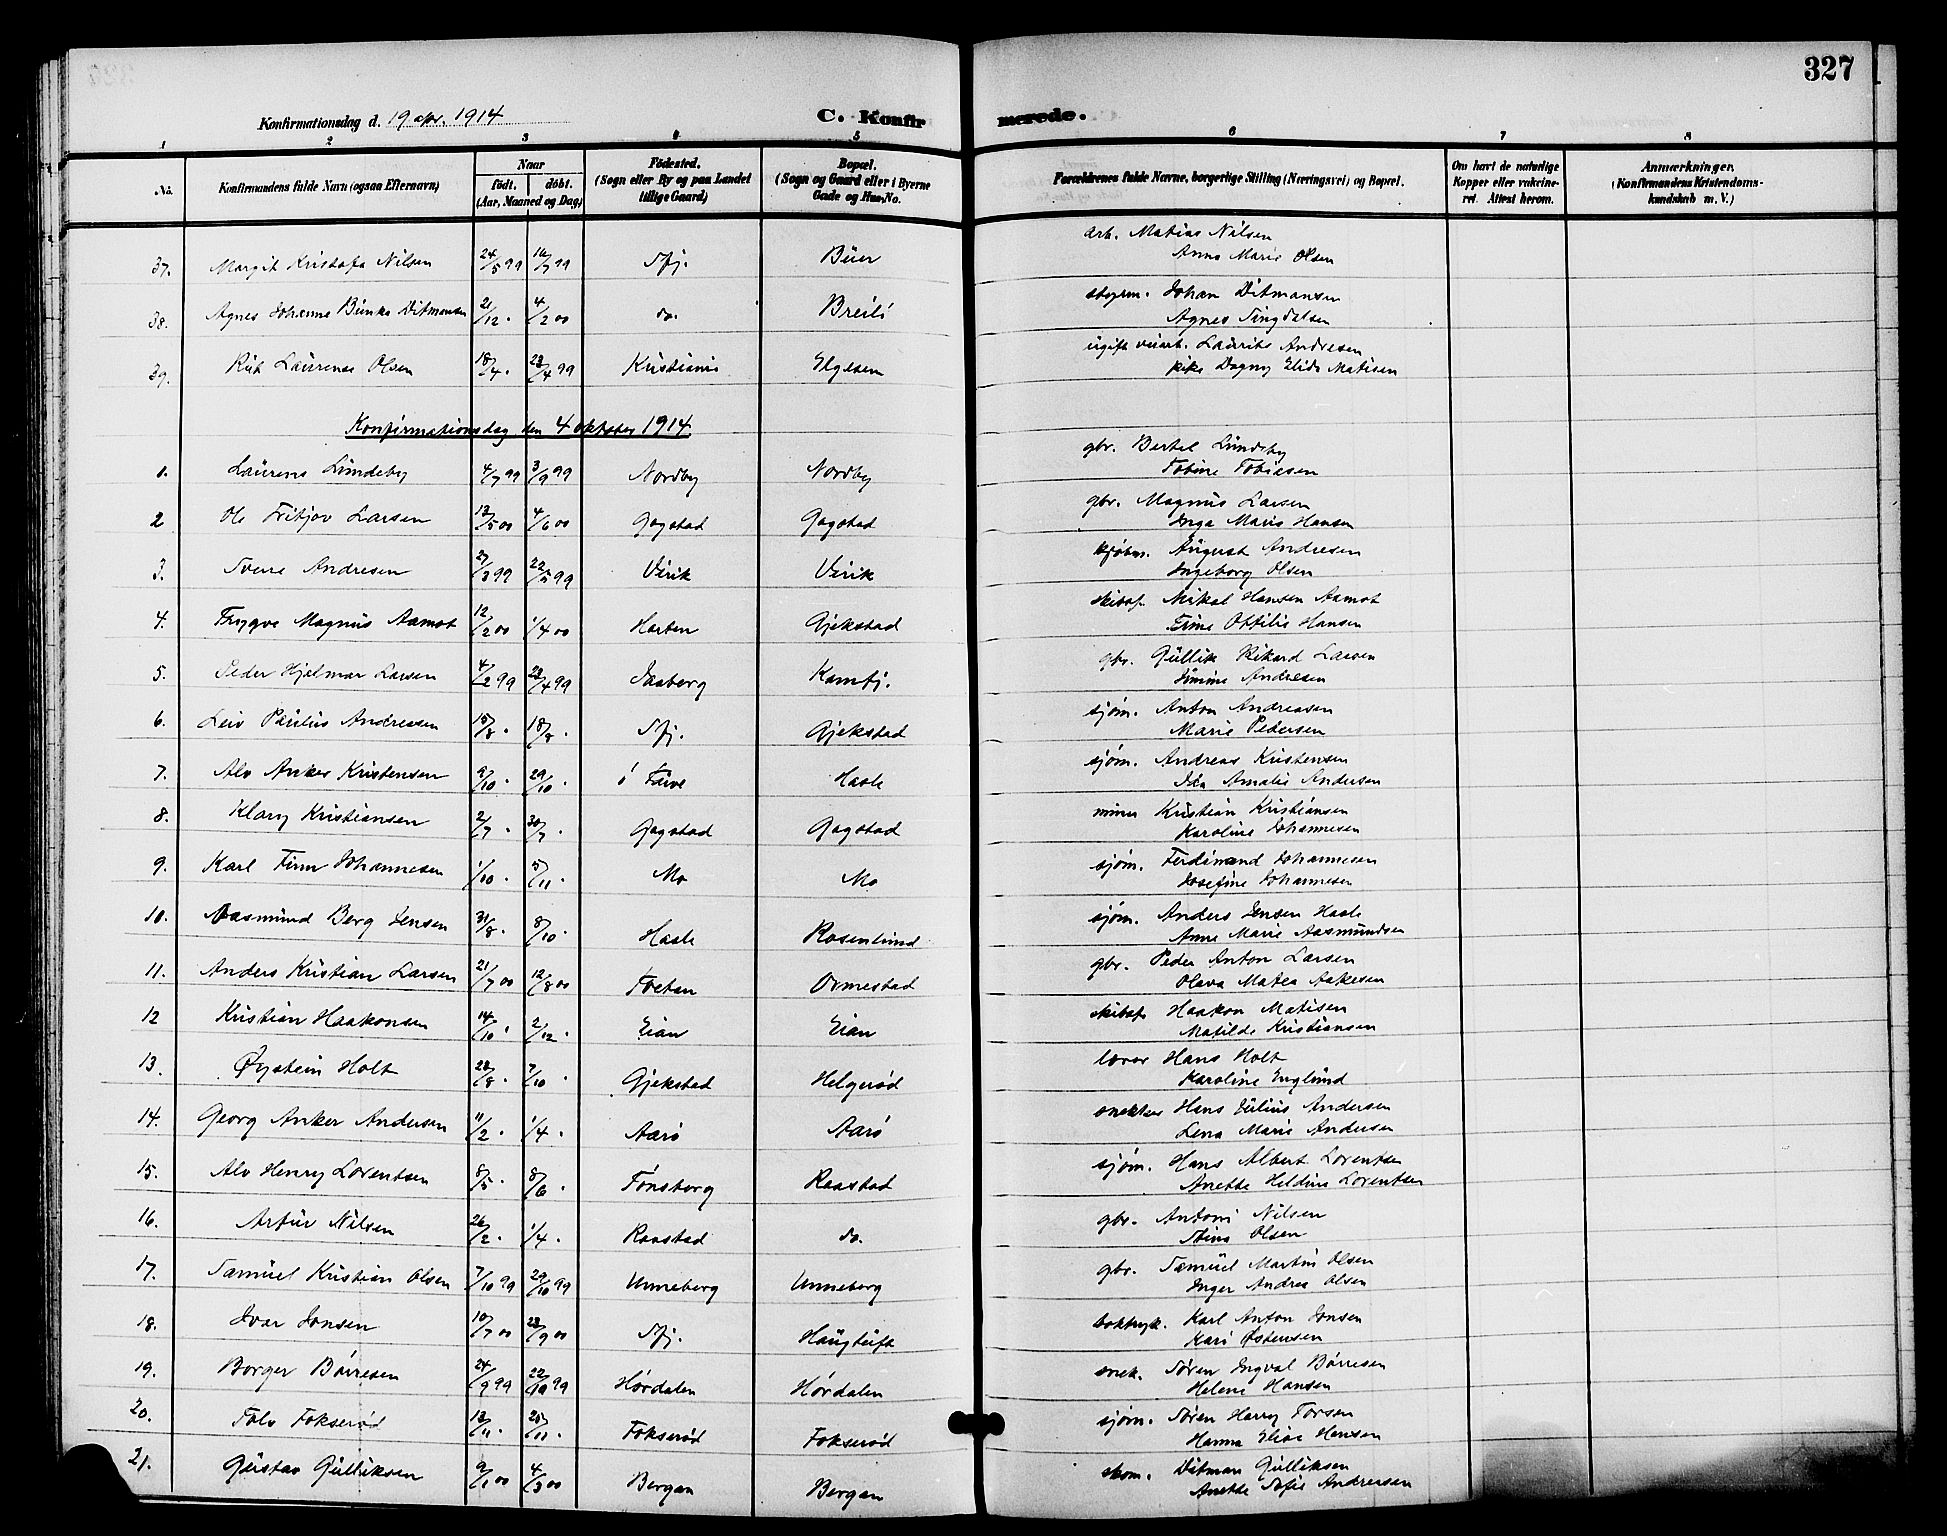 327
Konfirmationsdag d. 19 apr. 1914 C. Konfirmerede.
1 2 3 4 5 6 7 8
No. Konfirmandens fulde Navn (ogsaa Efternavn) Naar født. døbt. (Aar, Maaned og Dag) Fødested. (Sogn eller By og paa Landet tillige Gaard) Bopæl. (Sogn og Gaard eller i Byerne Gade og Hus-No. Forældrenes fulde Navne, borgerlige Stilling (Næringsvei) og Bopæl. Om havt de naturlige Kopper eller vakcineret. Attest herom. Anmærkninger. (Konfirmandens Kristendomskundskab m. V.)
37. Margit Kristofa Nilsen 24/5 99 16/7 99 Sfj. Buer arb. Matias Nilsen
Anna Marie Olsen
38. Agnes Johanne Bunka Ditmansen 2/12 · 4/2 00 do. Breili styrm. Johan Ditmansen
Agnes Tingdalsen
39. Rut Laurense Olsen 18/4 · 23/4 99 Kristiania Elgesem ugift Laurits Andresen
pike Dagny Elida Matisen
Konfirmationsdag den 4 oktober 1914
1. Laurens Lundeby 4/7 99 3/9 99 Nordby Nordby gbr. Bertel Lundeby
Tobine Tobiasen
2 Ole Fritjov Larsen 13/5 00 4/6 00 Gogstad Gogstad gbr. Magnus Larsen
Inga Marie Hansen
3. Sverre Andresen 27/3 99 22/5 99 Virik Virik kjøbm. August Andresen
Ingeborg Olsen
4. Trygve Magnus Aamot 12/2 00 1/4 00 Horten Gjekstad skibsf. Mikal Hansen Aamot
Trine Ottilie Hansen
5. Peder Hjalmar Larsen 4/2 99 23/4 99 Skaberg Kamfj. gbr. Gullik Rikard Larsen
Simine Andresen
6. Leiv Paulus Andreasen 15/8 · 18/8 · Sfj. Gjekstad sjøm. Anton Andreasen
Marie Pedersen
7. Alv Anker Kristensen 9/10 · 29/10 · ö Taive Hasle sjøm. Andreas Kristensen
Ida Amalie Andersen
8. Klary Kristiansen 2/7 · 30/7 · Gogstad Gogstad minør Kristian Kristiansen
Karoline Johannesen
9. Karl Finn Johannesen 1/10 · 5/11 · Mo Mo sjøm. Ferdinand Johannesen
Josefine Johannesen
10. Aasmund Berg Jensen 31/8 · 8/10 · Hasle Rosenlund sjøm. Anders Jensen Hasle
Anne Marie Aasmundsen
11. Anders Kristian Larsen 21/7 00 12/8 00 Tveten Ormestad gbr. Peder Anton Larsen
Olava Matea Aakesen
12 Kristian Haakonsen 14/10 · 2/12 · Eian Eian skibsf. Haakon Matisen
Matilde Kristiansen
13. Øystein Holt 28/8 · 7/10 · Gjekstad Helgerød lærer Hans Holt
Karoline Englund
14. Georg Anker Andersen 11/2 · 1/4 · Aarø Aarø snekker Hans Julius Andersen
Lena Marie Andersen
15. Alv Henry Lorentsen 8/5 · 8/6 · Tønsberg Raastad sjøm. Hans Albert Lorentsen
Anette Heldine Lorentsen
16. Artur Nilsen 26/2 · 1/4 · Raastad do. gbr. Antoni Nilsen
Stina Olsen
17. Samuel Kristian Olsen 7/10 99 29/10 99 Unneberg Unneberg gbr. Samuel Martin Olsen
Inger Andrea Olsen
18. Ivar Jonsen 10/7 00 23/9 00 Sfj. Haugtuft boktryk. Karl Anton Jonsen
Kari Østensen
19. Borger Børresen 24/9 99 22/10 99 Hørdalen Hørdalen snek. Søren Ingval Børresen
Helene Hansen
20. Tolv Fokserød 13/11 · 20/11 · Fokserød Fokserød sjøm. Søren Harry Torsen
Hanna Elise Hansen
21. Gustav Gulliksen 9/1 00 4/3 00 Bergan Bergan skom. Ditman Gulliksen
Anette Sofie Andreasen